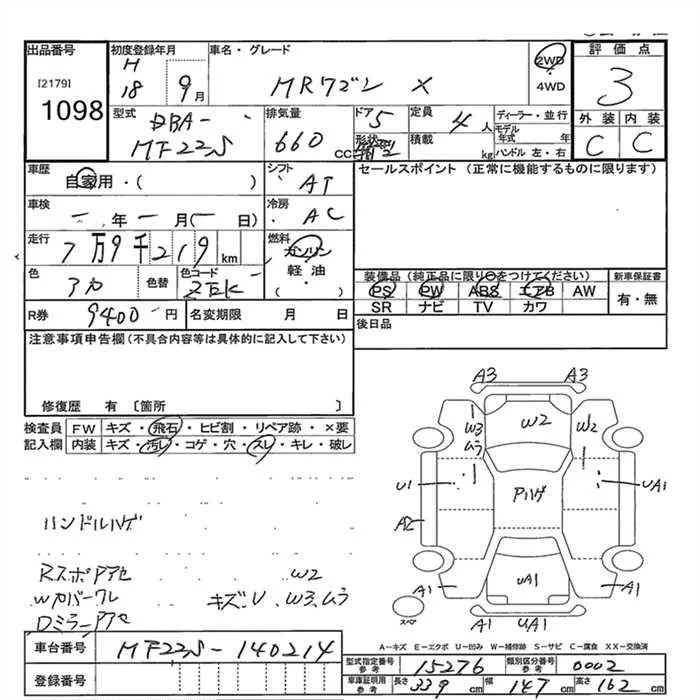 出品番号 初度登録年月 車名・グレード 評価点
[2179] H 18 9月 MRワゴン X 2WD 4WD 3
1098
型式 排気量 ドア 定員 ディーラー・並行 外装 内装
DBA- MF22S 660 cc 5 4人 モデル年式 年 C C
形状 積載 kg ハンドル 左・右
車歴 シフト セールスポイント (正常に機能するものに限ります)
自家用・( ) AT
車検 冷房
年 月( 日) AC
走行 燃料
7万9千219km ガソリン
軽油
( )
色 色替 色コード
アカ ZEK
装備品(純正品に限り○をつけてください) 新車保証書
PS PW ABS エアB AW 有・無
SR ナビ TV カワ
R券 9400円 名変期限 月 日
後日品
注意事項申告欄(不具合内容等は具体的に記入して下さい)
修復歴 有 〔箇所 〕
検査員 FW キズ・飛石・ヒビ割・リペア跡・×要
記入欄 内装 キズ・汚レ・コゲ・穴・スレ・キレ・破レ
A3 A3
W3 ムラ W2 W2
U1 Pハゲ UA1
A2
A1 UA1 A1
A1 UA1
スペア
ハンドルハゲ
RスポPアセ W2
Wカバーワレ キズ.U W3.ムラ
DミラーPアセ
A-キズ E-エクボ U-凹み W-補修跡 S-サビ C-腐食 XX-交換済
車台番号 MF22S-140214
登録番号
型式指定番号 参考 15276 類別区分番号 参考 0002
車庫証明用 参考 長さ 339cm 幅 147cm 高さ 162cm